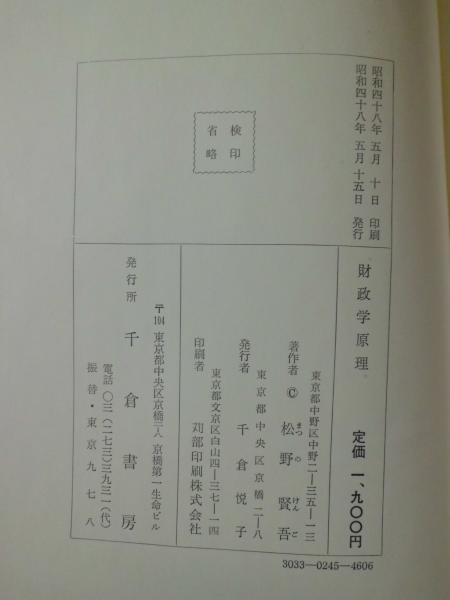 昭和四十八年 五月 十 日 印刷
昭和四十八年 五月 十五日 発行
検印
省略
財政学原理
定価 一、九〇〇円
東京都中野区中野二―三五―一三
著作者 © 松野賢吾
まつ の けん ご
東京都中央区京橋二―八
発行者 千倉悦子
東京都文京区白山四―三七―一四
印刷者 苅部印刷株式会社
〒104 東京都中央区京橋二八 京橋第一生命ビル
発行所 千倉書房
電話 〇三(二七三)三九三一(代)
振替・東京九七八
3033―0245―4606